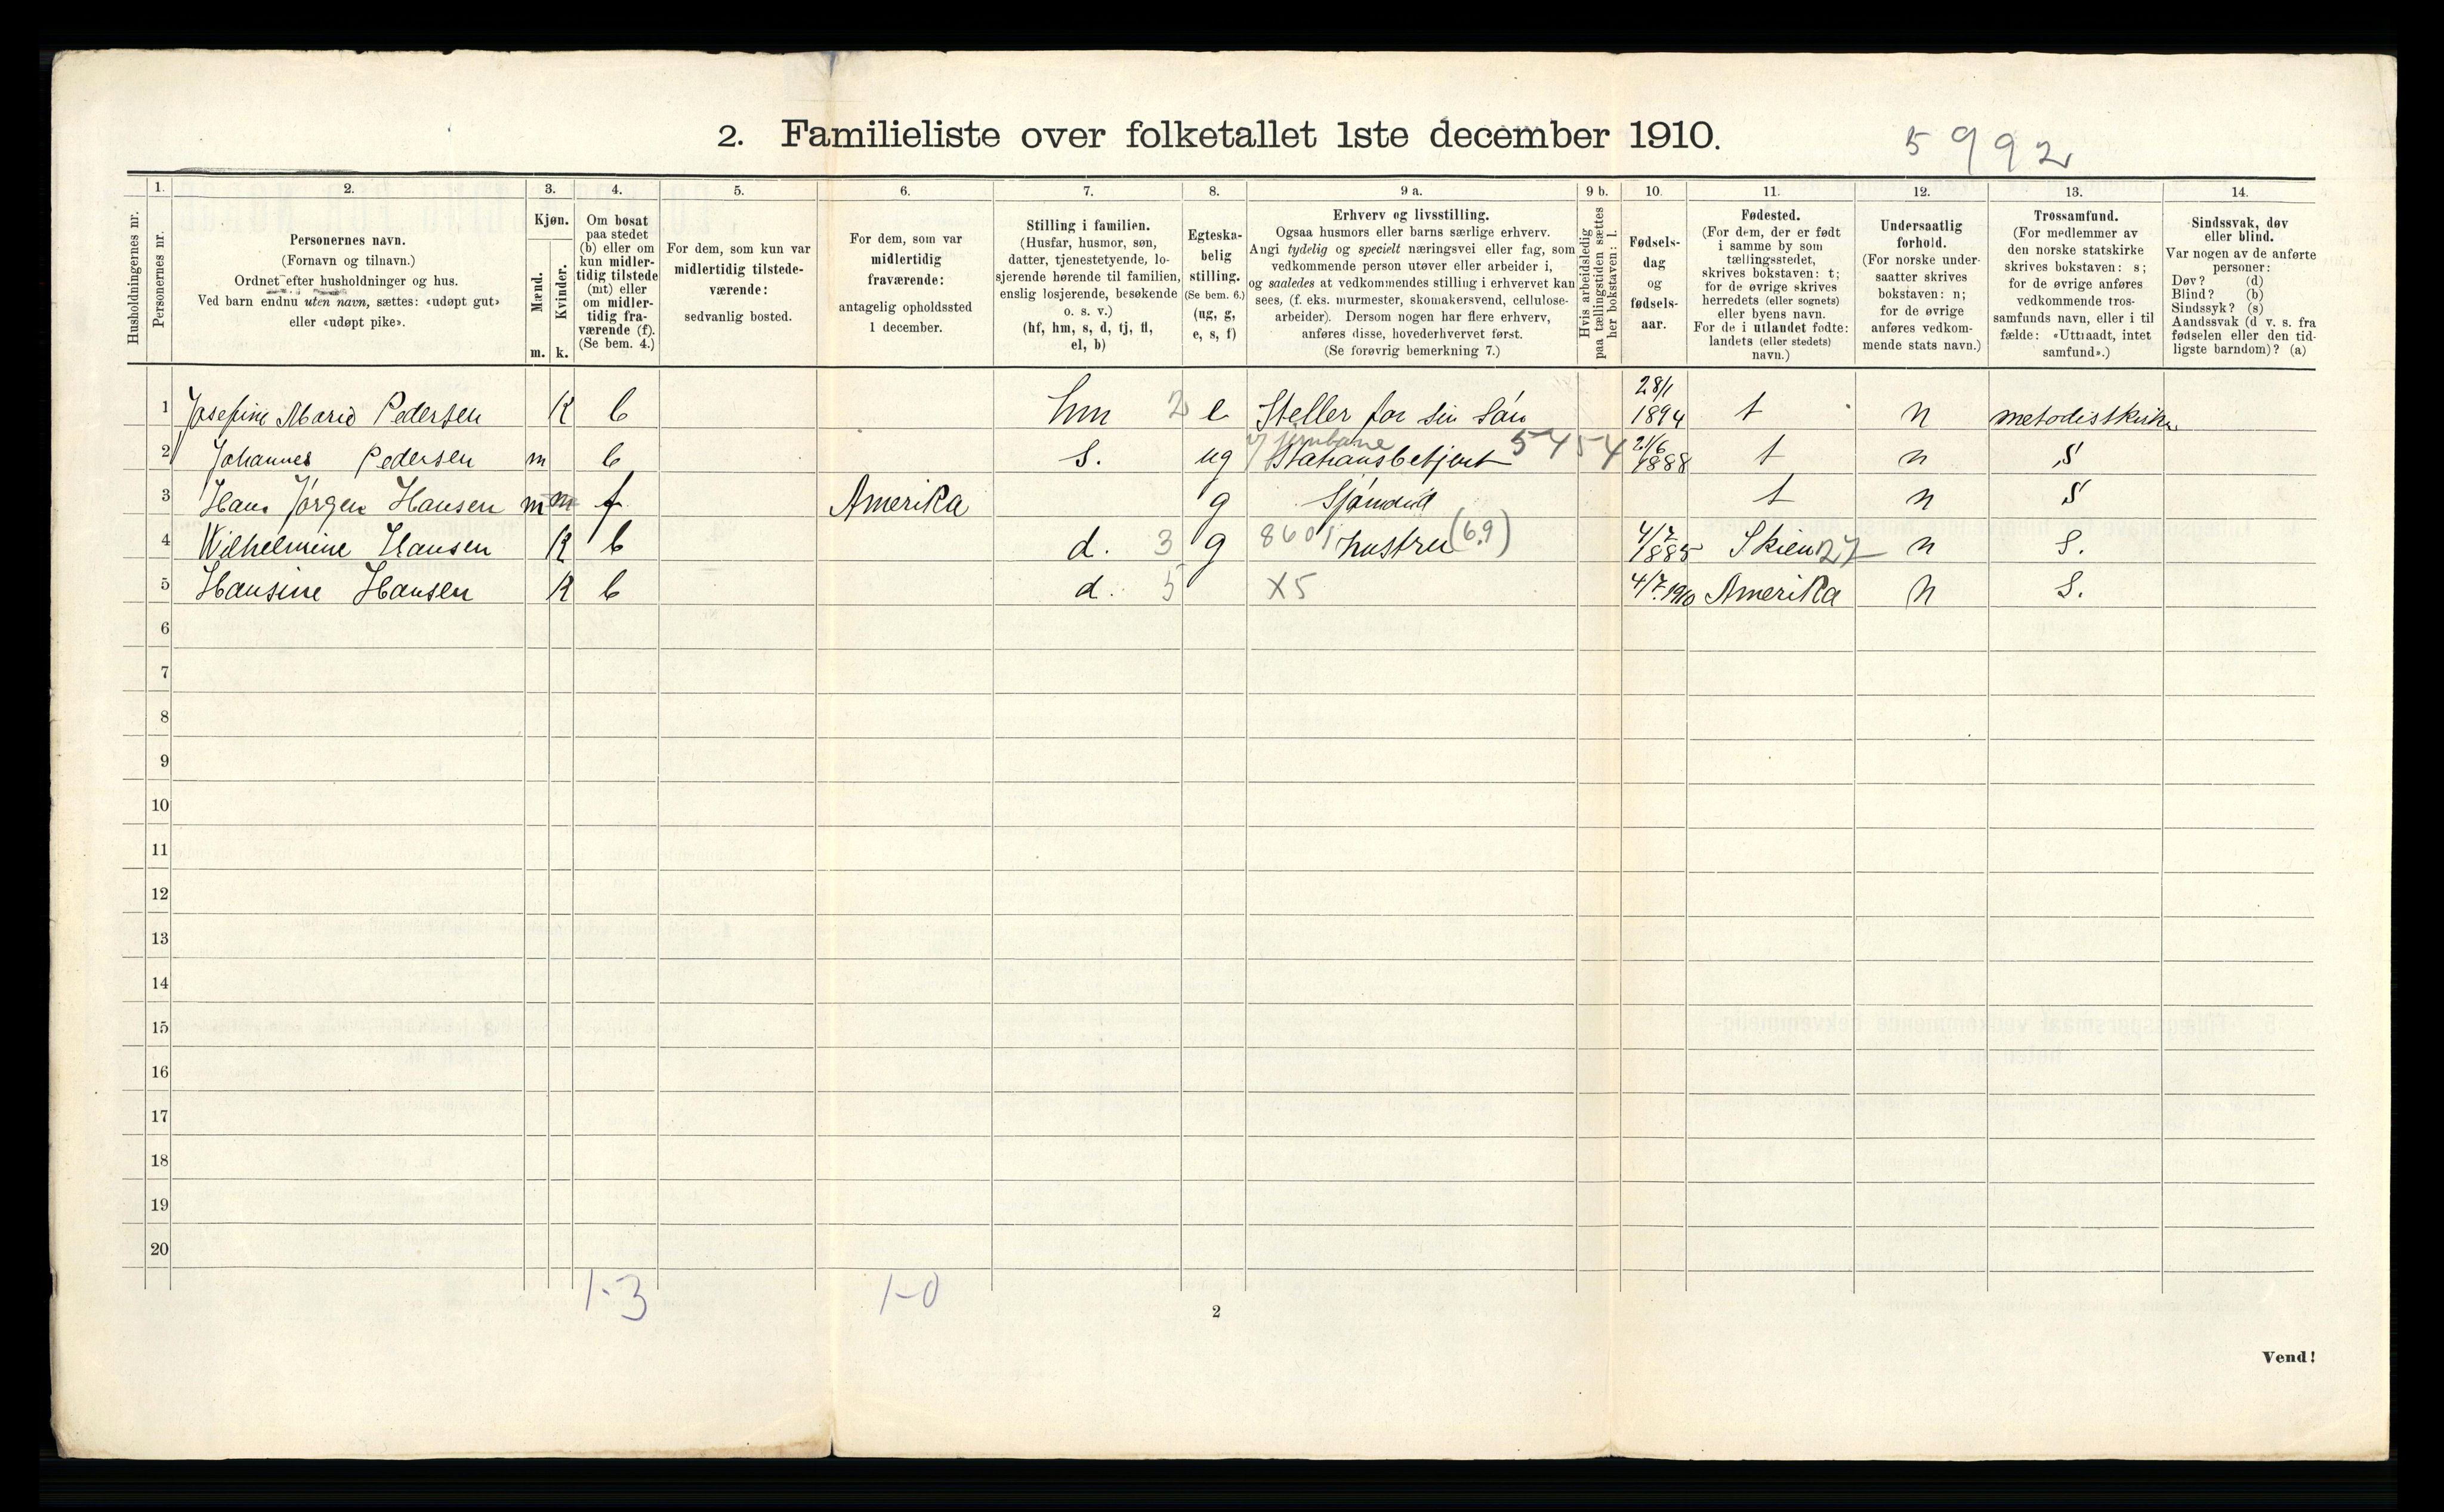 2. Familieliste over folketallet 1ste december 1910.
5992
Husholdningernes nr.
1. Personernes nr.
2. Personernes navn.
(Fornavn og tilnavn.)
Ordnet efter husholdninger og hus.
Ved barn endnu uten navn, sættes: «udøpt gut»
eller «udøpt pike».
3. Kjøn.
Mænd. m.
Kvinder. k.
4. Om bosat
paa stedet
(b) eller om
kun midler-
tidig tilstede
(mt) eller
om midler-
tidig fra-
værende (f).
(Se bem. 4.)
5. For dem, som kun var
midlertidig tilstede-
værende:
sedvanlig bosted.
6. For dem, som var
midlertidig
fraværende:
antagelig opholdssted
1 december.
7. Stilling i familien.
(Husfar, husmor, søn,
datter, tjenestetyende, lo-
sjerende hørende til familien,
enslig losjerende, besøkende
o. s. v.)
(hf, hm, s, d, tj, fl,
el, b)
8. Egteska-
belig
stilling.
(Se bem. 6.)
(ug, g,
e, s, f)
9 a. Erhverv og livsstilling.
Ogsaa husmors eller barns særlige erhverv.
Angi tydelig og specielt næringsvei eller fag, som
vedkommende person utøver eller arbeider i,
og saaledes at vedkommendes stilling i erhvervet kan
sees, (f. eks. murmester, skomakersvend, cellulose-
arbeider). Dersom nogen har flere erhverv,
anføres disse, hovederhvervet først.
(Se forøvrig bemerkning 7.)
9 b. Hvis arbeidsledig
paa tællingstiden sættes
her bokstaven: l.
10. Fødsels-
dag
og
fødsels-
aar.
11. Fødested.
(For dem, der er født
i samme by som
tællingsstedet,
skrives bokstaven: t;
for de øvrige skrives
herredets (eller sognets)
eller byens navn.
For de i utlandet fødte:
landets (eller stedets)
navn.)
12. Undersaatlig
forhold.
(For norske under-
saatter skrives
bokstaven: n;
for de øvrige
anføres vedkom-
mende stats navn.)
13. Trossamfund.
(For medlemmer av
den norske statskirke
skrives bokstaven: s;
for de øvrige anføres
vedkommende tros-
samfunds navn, eller i til
fælde: «Uttraadt, intet
samfund».)
14. Sindssvak, døv
eller blind.
Var nogen av de anførte
personer:
Døv? (d)
Blind? (b)
Sindssyk? (s)
Aandssvak (d v. s. fra
fødselen eller den tid-
ligste barndom)? (a)
1 Josefine Marie Pedersen K b hm 2 e Steller for sin Søn 28/1 1894 t n metodistkirke
2 Johannes Pedersen m b s. ug v/ jernbane Stationsbetjent 5454 21/6 1888 t n S
3 Hans Jörgen Hansen m m f Amerika g Sjömand t n S
4 Wilhelmine Hansen K b d. 3 g 8601 hustru (6.9) 4/7 1885 Skien 27 n S.
5 Hansine Hansen K b d. 5 X5 4/7.1910 Amerika n S.
6
7
8
9
10
11
12
13
14
15
16
17
18
19
20
1-3 1-0
2
Vend!